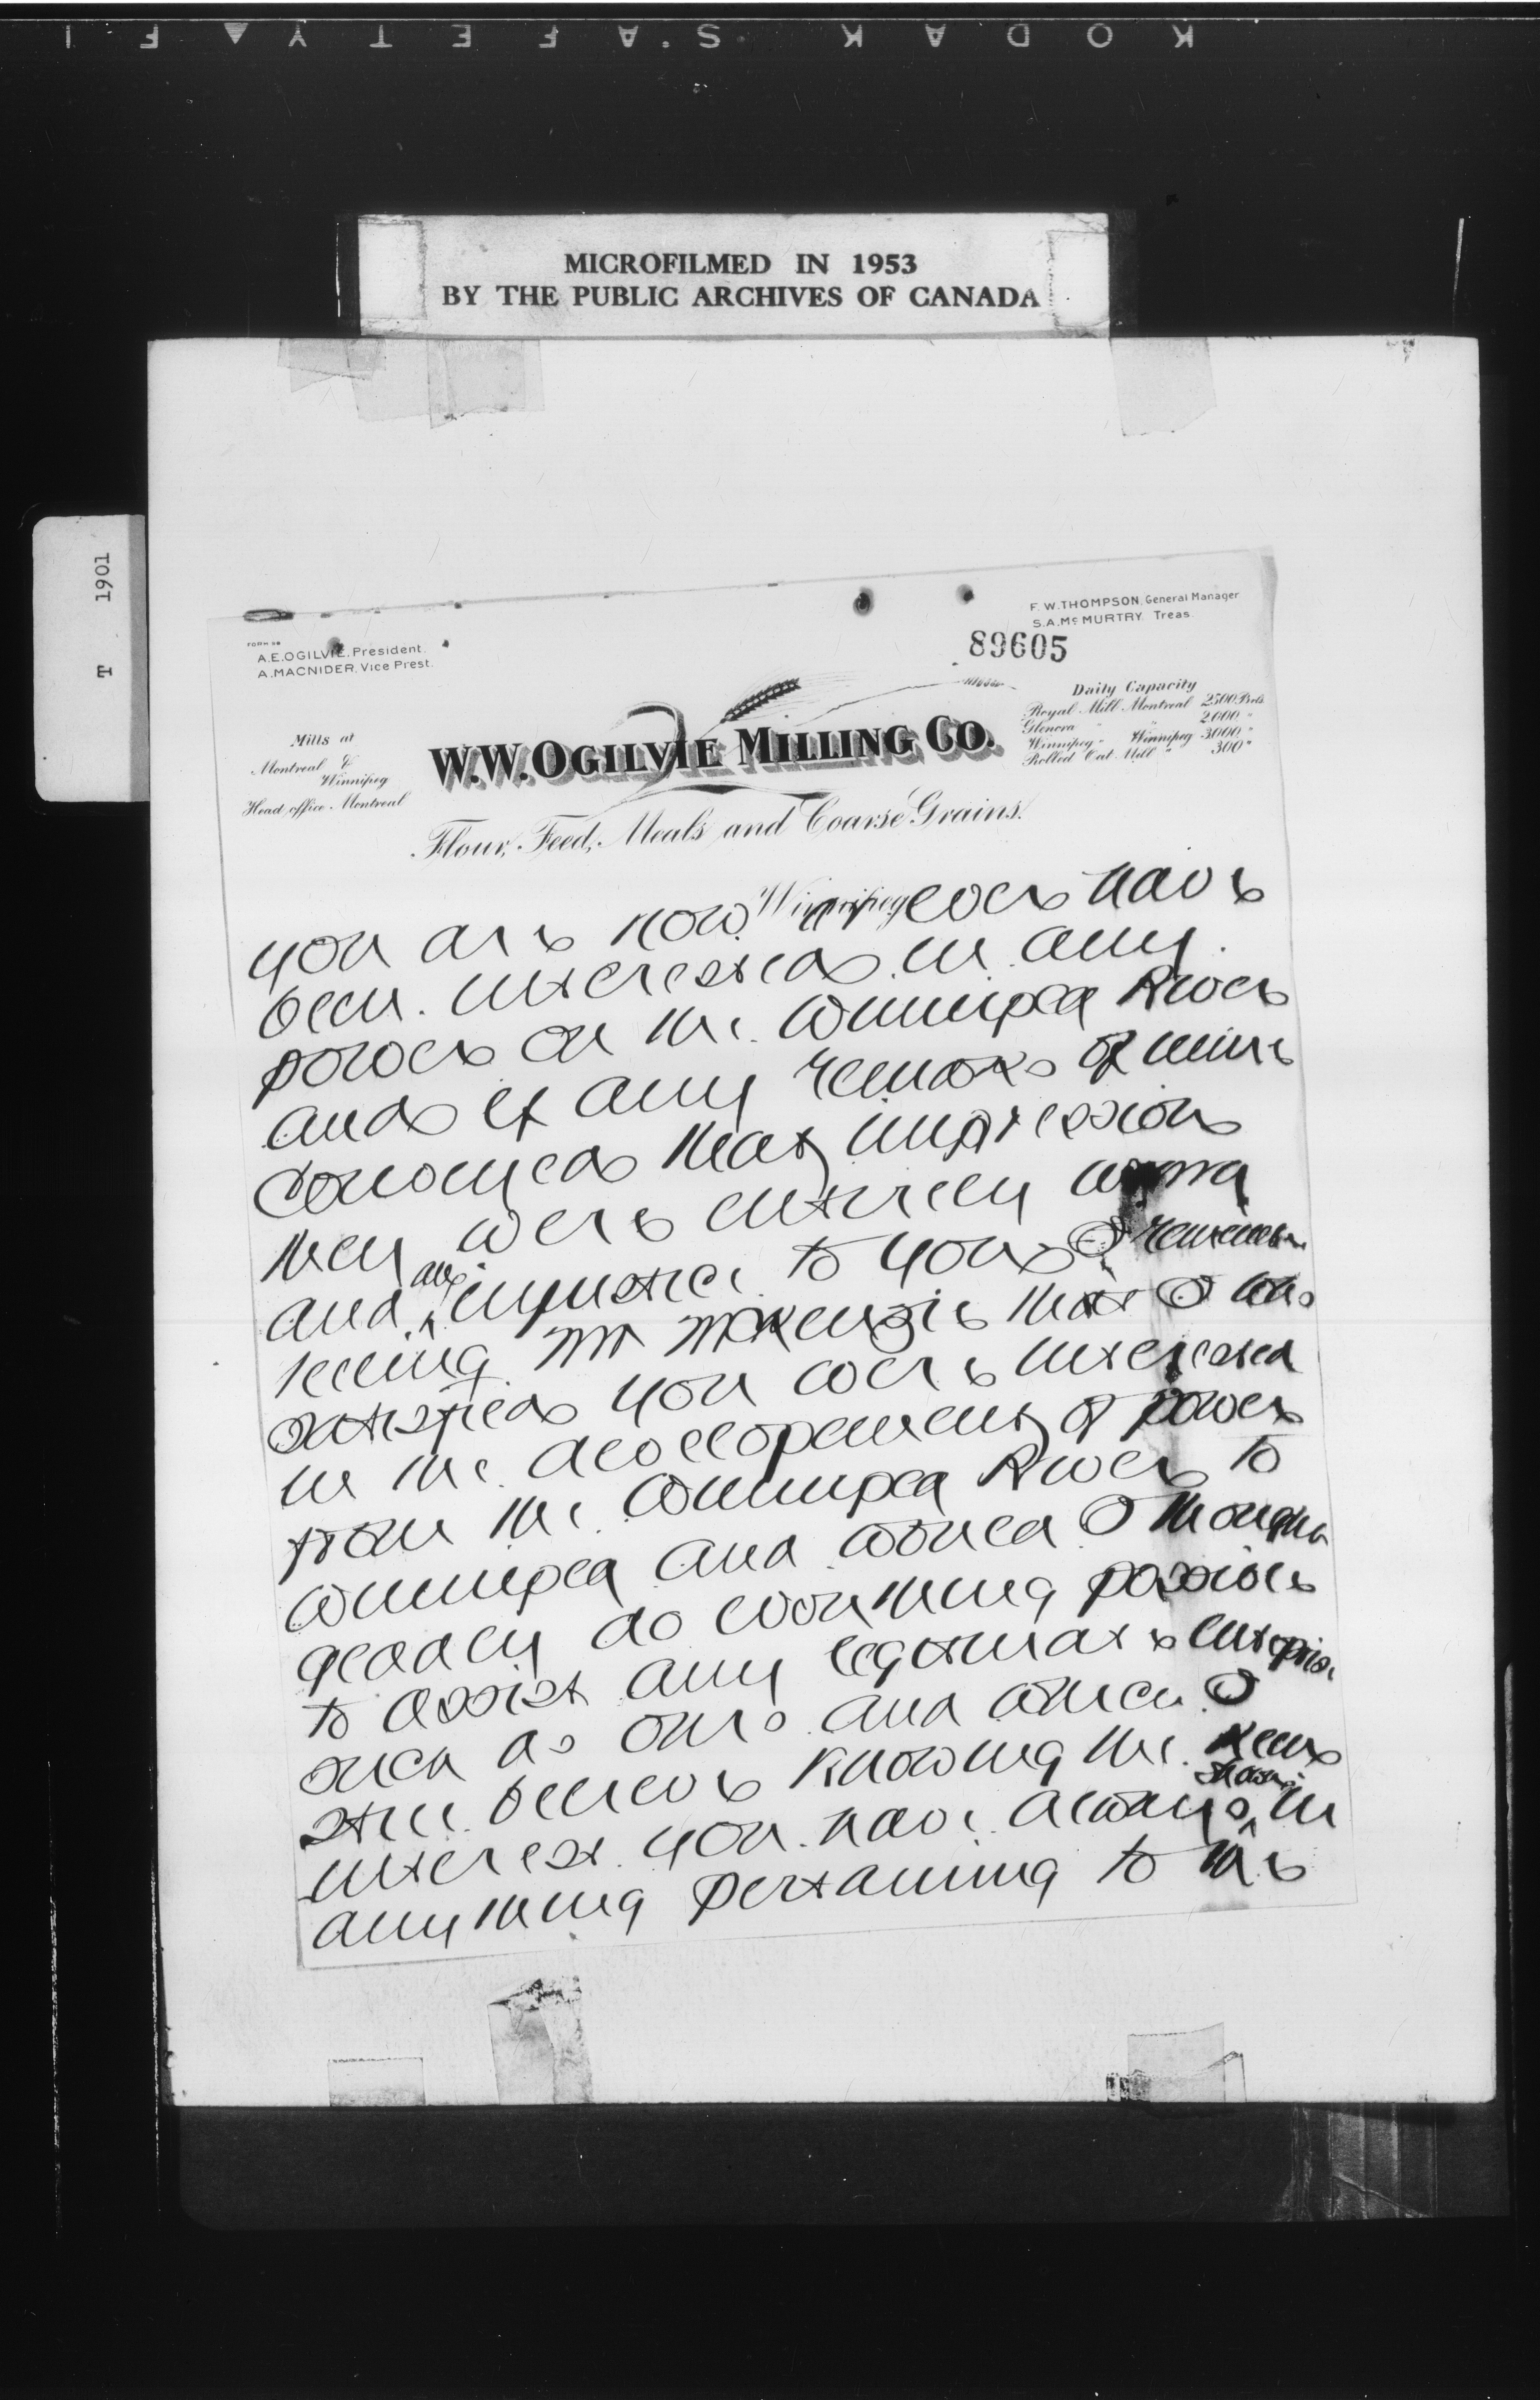 KODAK S.'A.F.E.T.Y ▲ F I
MICROFILMED IN 1953
BY THE PUBLIC ARCHIVES OF CANADA
T 1901
F. W. THOMPSON, General Manager
S.A. Mc MURTRY Treas.
FORM 28
A.E. OGILVIE, President.
A. MACNIDER, Vice Prest.
89605
Daily Capacity
Royal Mill Montreal 2500 Brls
Glenora " " 2000 "
Winnipeg " Winnipeg 3000 "
Rolled Oat Mill " 300 "
Mills at
Montreal &
Winnipeg
Head office Montreal
W.W. OGILVIE MILLING CO.
Flour, Feed, Meals and Coarse Grains.
Winnipeg
you are now or ever have
been interested in any
power on the Winnipeg River
and if any remarks of mine
conveyed that impression
they were entirely wrong
and an injustice to you I remember
telling Mr McKenzie that I was
satisfied you were interested
in the developement of power
from the Winnipeg River to
Winnipeg and would I thought
gladly do everything possible
to assist any legitimate enterprise
such as ours and which I
still believe knowing the keen
interest you have always shown in
anything pertaining to the